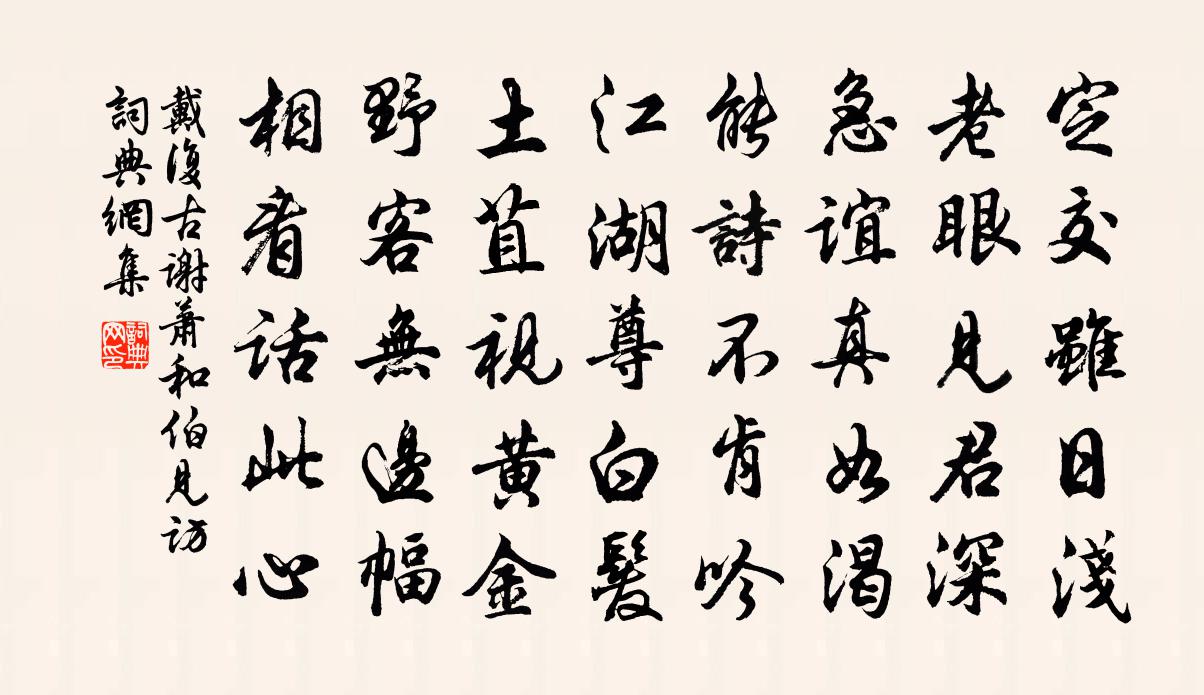 定交雖日淺
老眼見君深
急誼真如渴
能詩不肯吟
江湖尊白髮
土苴視黃金
野客無邊幅
相看話此心
戴復古謝蕭和伯見訪
詞典網集
詞典网印